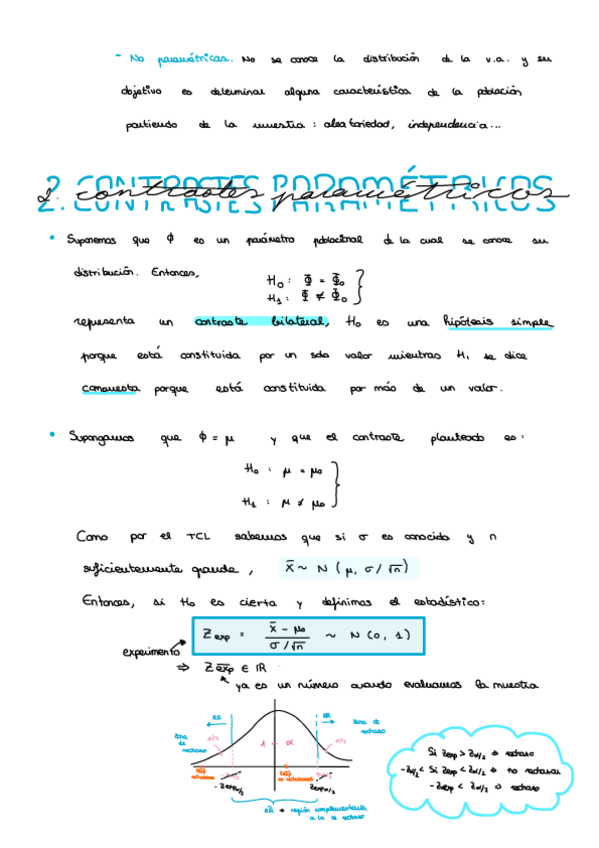 - No paramétricas. No se conoce la distribución de la v.a. y su
objetivo es determinar alguna característica de la población
partiendo de la muestra: aleatoriedad, independencia...
2. contrastes paramétricos
• Suponemos que Φ es un parámetro poblacional de la cual se conoce su
distribución. Entonces,
H₀ : Φ = Φ₀
H₁ : Φ ≠ Φ₀
representa un contraste bilateral, H₀ es una hipótesis simple
porque está constituida por un solo valor mientras H₁ se dice
compuesta porque está constituida por más de un valor.
• Supongamos que Φ = μ y que el contraste planteado es:
H₀ : μ = μ₀
H₁ : μ ≠ μ₀
Como por el TCL sabemos que si σ es conocida y n
suficientemente grande, x̄ ~ N (μ, σ/√n)
Entonces, si H₀ es cierta y definimos el estadístico:
Z exp = x̄ - μ₀ / σ/√n ~ N (0, 1)
experimento
⇒ Z exp ∈ IR
ya es un número cuando evaluamos la muestra
RR RR
zona de rechazo
zona de rechazo
α/2 1 - α α/2
RR → región complementaria
a la de rechazo
Si Zexp > Zα/2 → rechazo
-Zα/2 < Si Zexp < Zα/2 → no rechazar
-Zexp < Zα/2 → rechazo